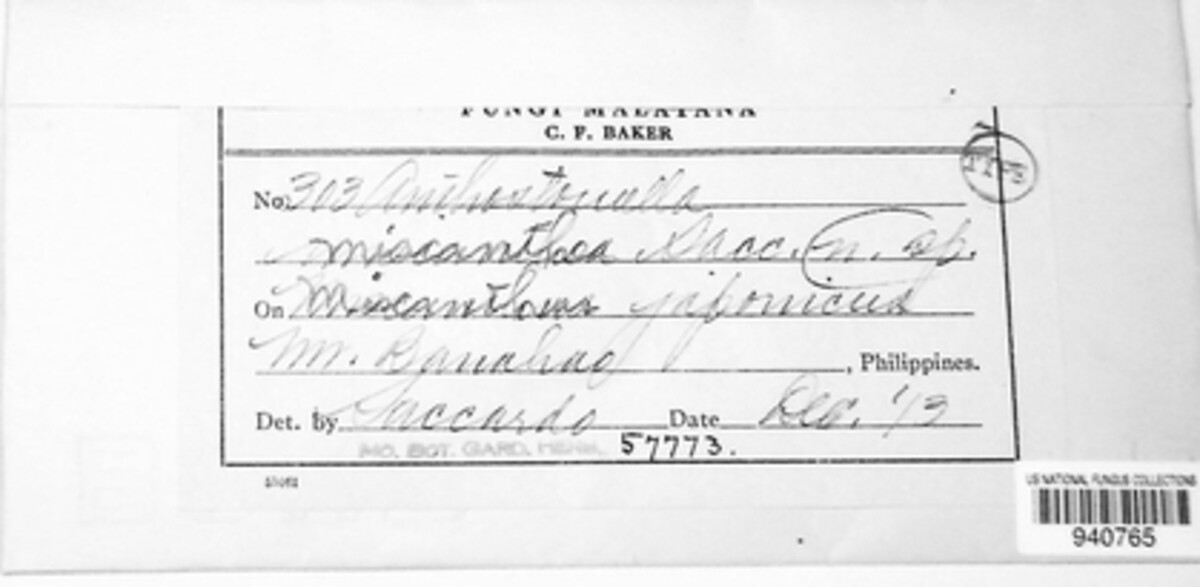 FUNGI MALAYANA
C. F. BAKER
TYPE
No. 303 Anthostomella
miscanthea Sacc. n. sp.
On Miscanthus japonicus
Mt. Banahao, Philippines.
Det. by Saccardo Date Dec. '13
MO. BOT. GARD. HERB. 57773.
US NATIONAL FUNGUS COLLECTIONS
940765